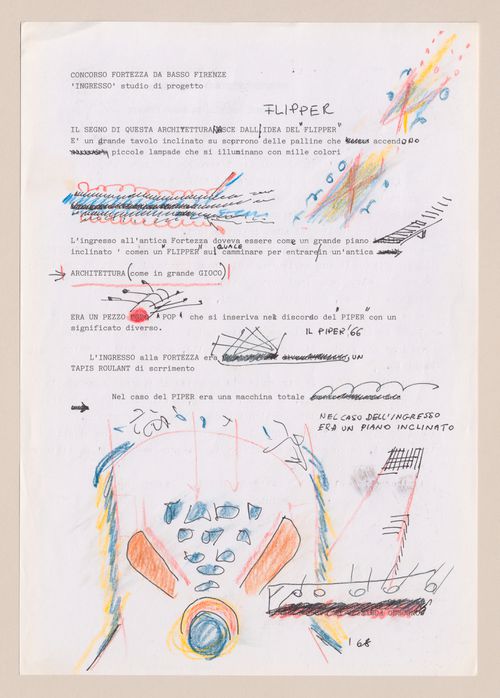 CONCORSO FORTEZZA DA BASSO FIRENZE
'INGRESSO' studio di progetto
FLIPPER
IL SEGNO DI QUESTA ARCHITETTURA NASCE DALL'IDEA DEL "FLIPPER"
E' un grande tavolo inclinato su scorrono delle palline che accendONO
piccole lampade che si illuminano con mille colori
L'ingresso all'antica Fortezza doveva essere come un grande piano
inclinato ' comen un "FLIPPER" sul QUALE camminare per entrare in un'antica
ARCHITETTURA (come in grande GIOCO)
ERA UN PEZZO "POP" che si inseriva nel discordo del "PIPER" con un
significato diverso.
IL PIPER '66
L'INGRESSO alla FORTEZZA era UN
TAPIS ROULANT di scorrimento
Nel caso del PIPER era una macchina totale
NEL CASO DELL'INGRESSO
ERA UN PIANO INCLINATO
'68